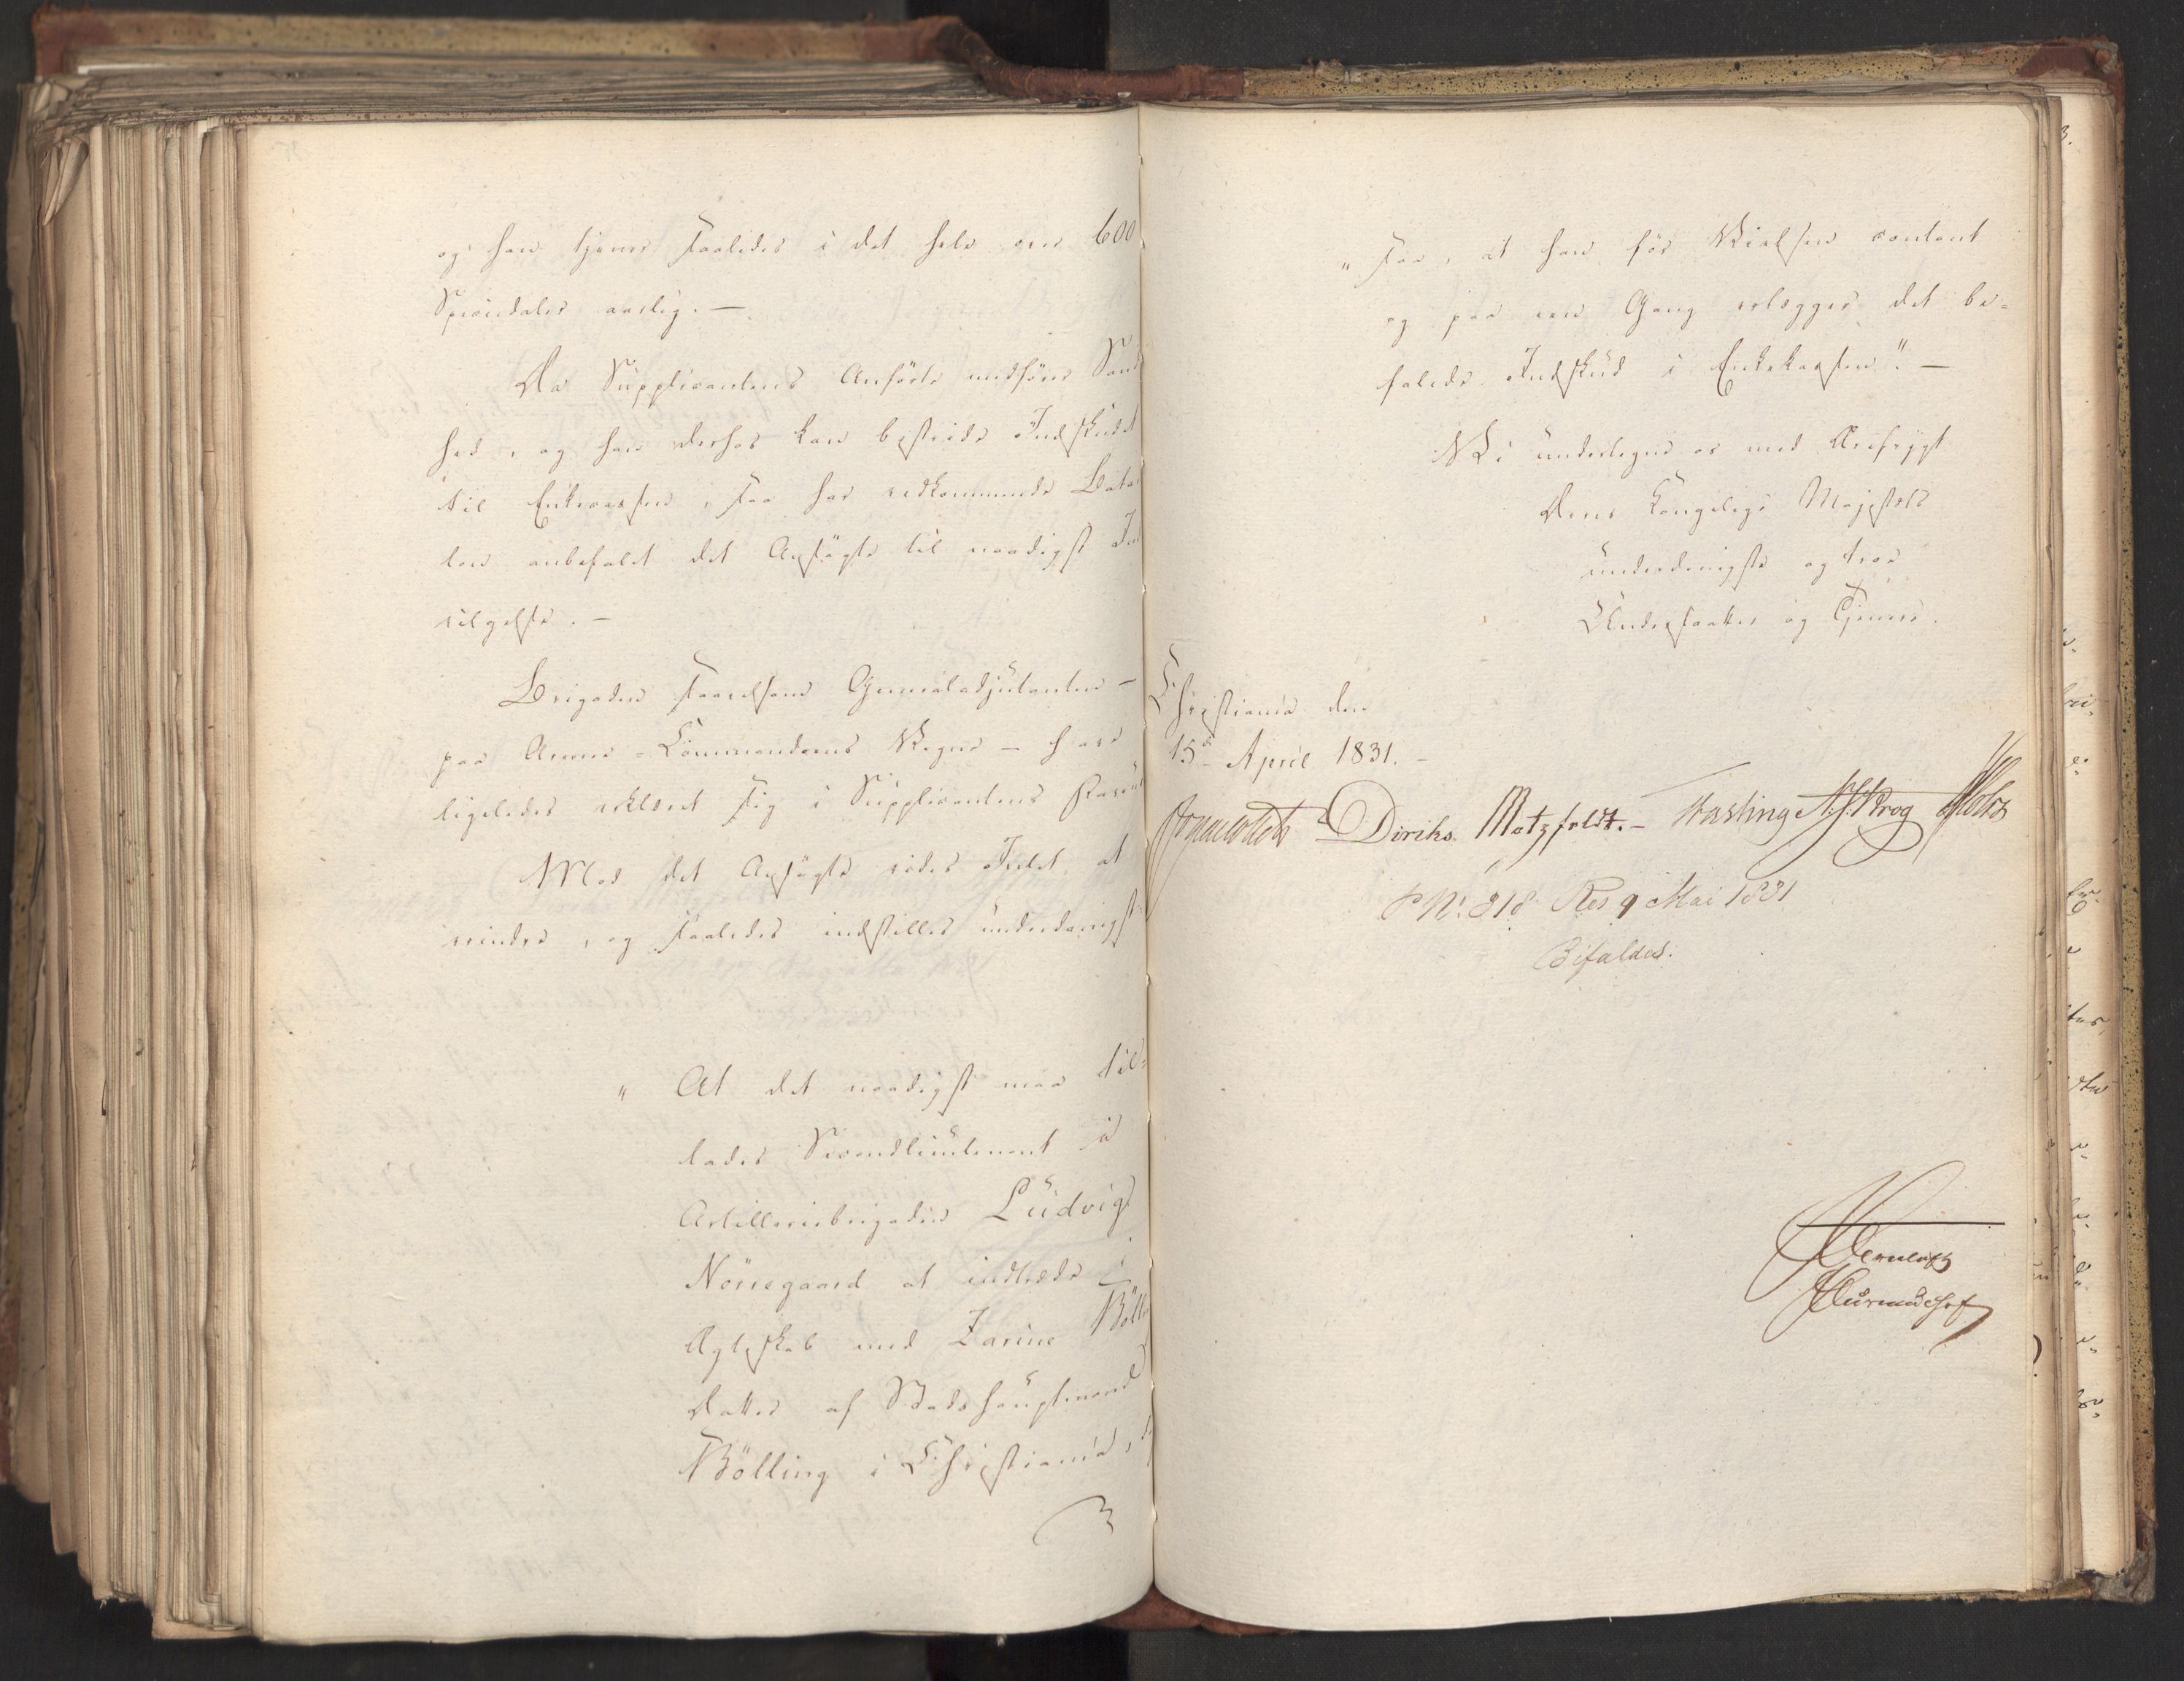 og han tjener saaledes i det hele over 600
Speciedaler aarlig. —
Da Supplicantens Anförte medfører Sand
hed, og han derhos kan bestride Indskudet
til Enkecassen, saa har vedkommende Batal
lon anbefalet det Ansögte til naadigst Ind
vilgelse. —
Brigaden saavelsom Generaladjutanten —
paa Armee-Commandoens Vegne — have
ligeledes erklæret sig i Supplicantens Faveur
Mod det Ansögte vides Intet at
erindre, og saaledes indstilles underdanigst
" At det naadigst maa til-
lades Secondlieutenant i
Artilleriebrigaden Ludvig
Nörregaard at indtræde i
Ægteskab med Zarine Bölling
Datter af Stadshauptmand
Bölling i Christiania,
" saa, at han för Vielsen contant
og paa een Gang erlægger det be-
falede Indskud i Enkekassen". —
Vi undertegne os med Ærefrygt
Deres Kongelige Majestæts
underdanigste og troe
Undersaatter og Tjenere.
Christiania den
15de April 1831. —
Diriks. Motzfeldt. — Fasting N.J. Krog Holst
P No. 318 Res 9 Mai 1831
Bifaldes.